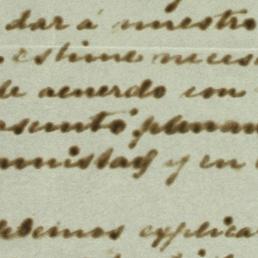 dar á nuestro
estime neces
de acuerdo con
asunto plenam
amnistay y en
debemos explica